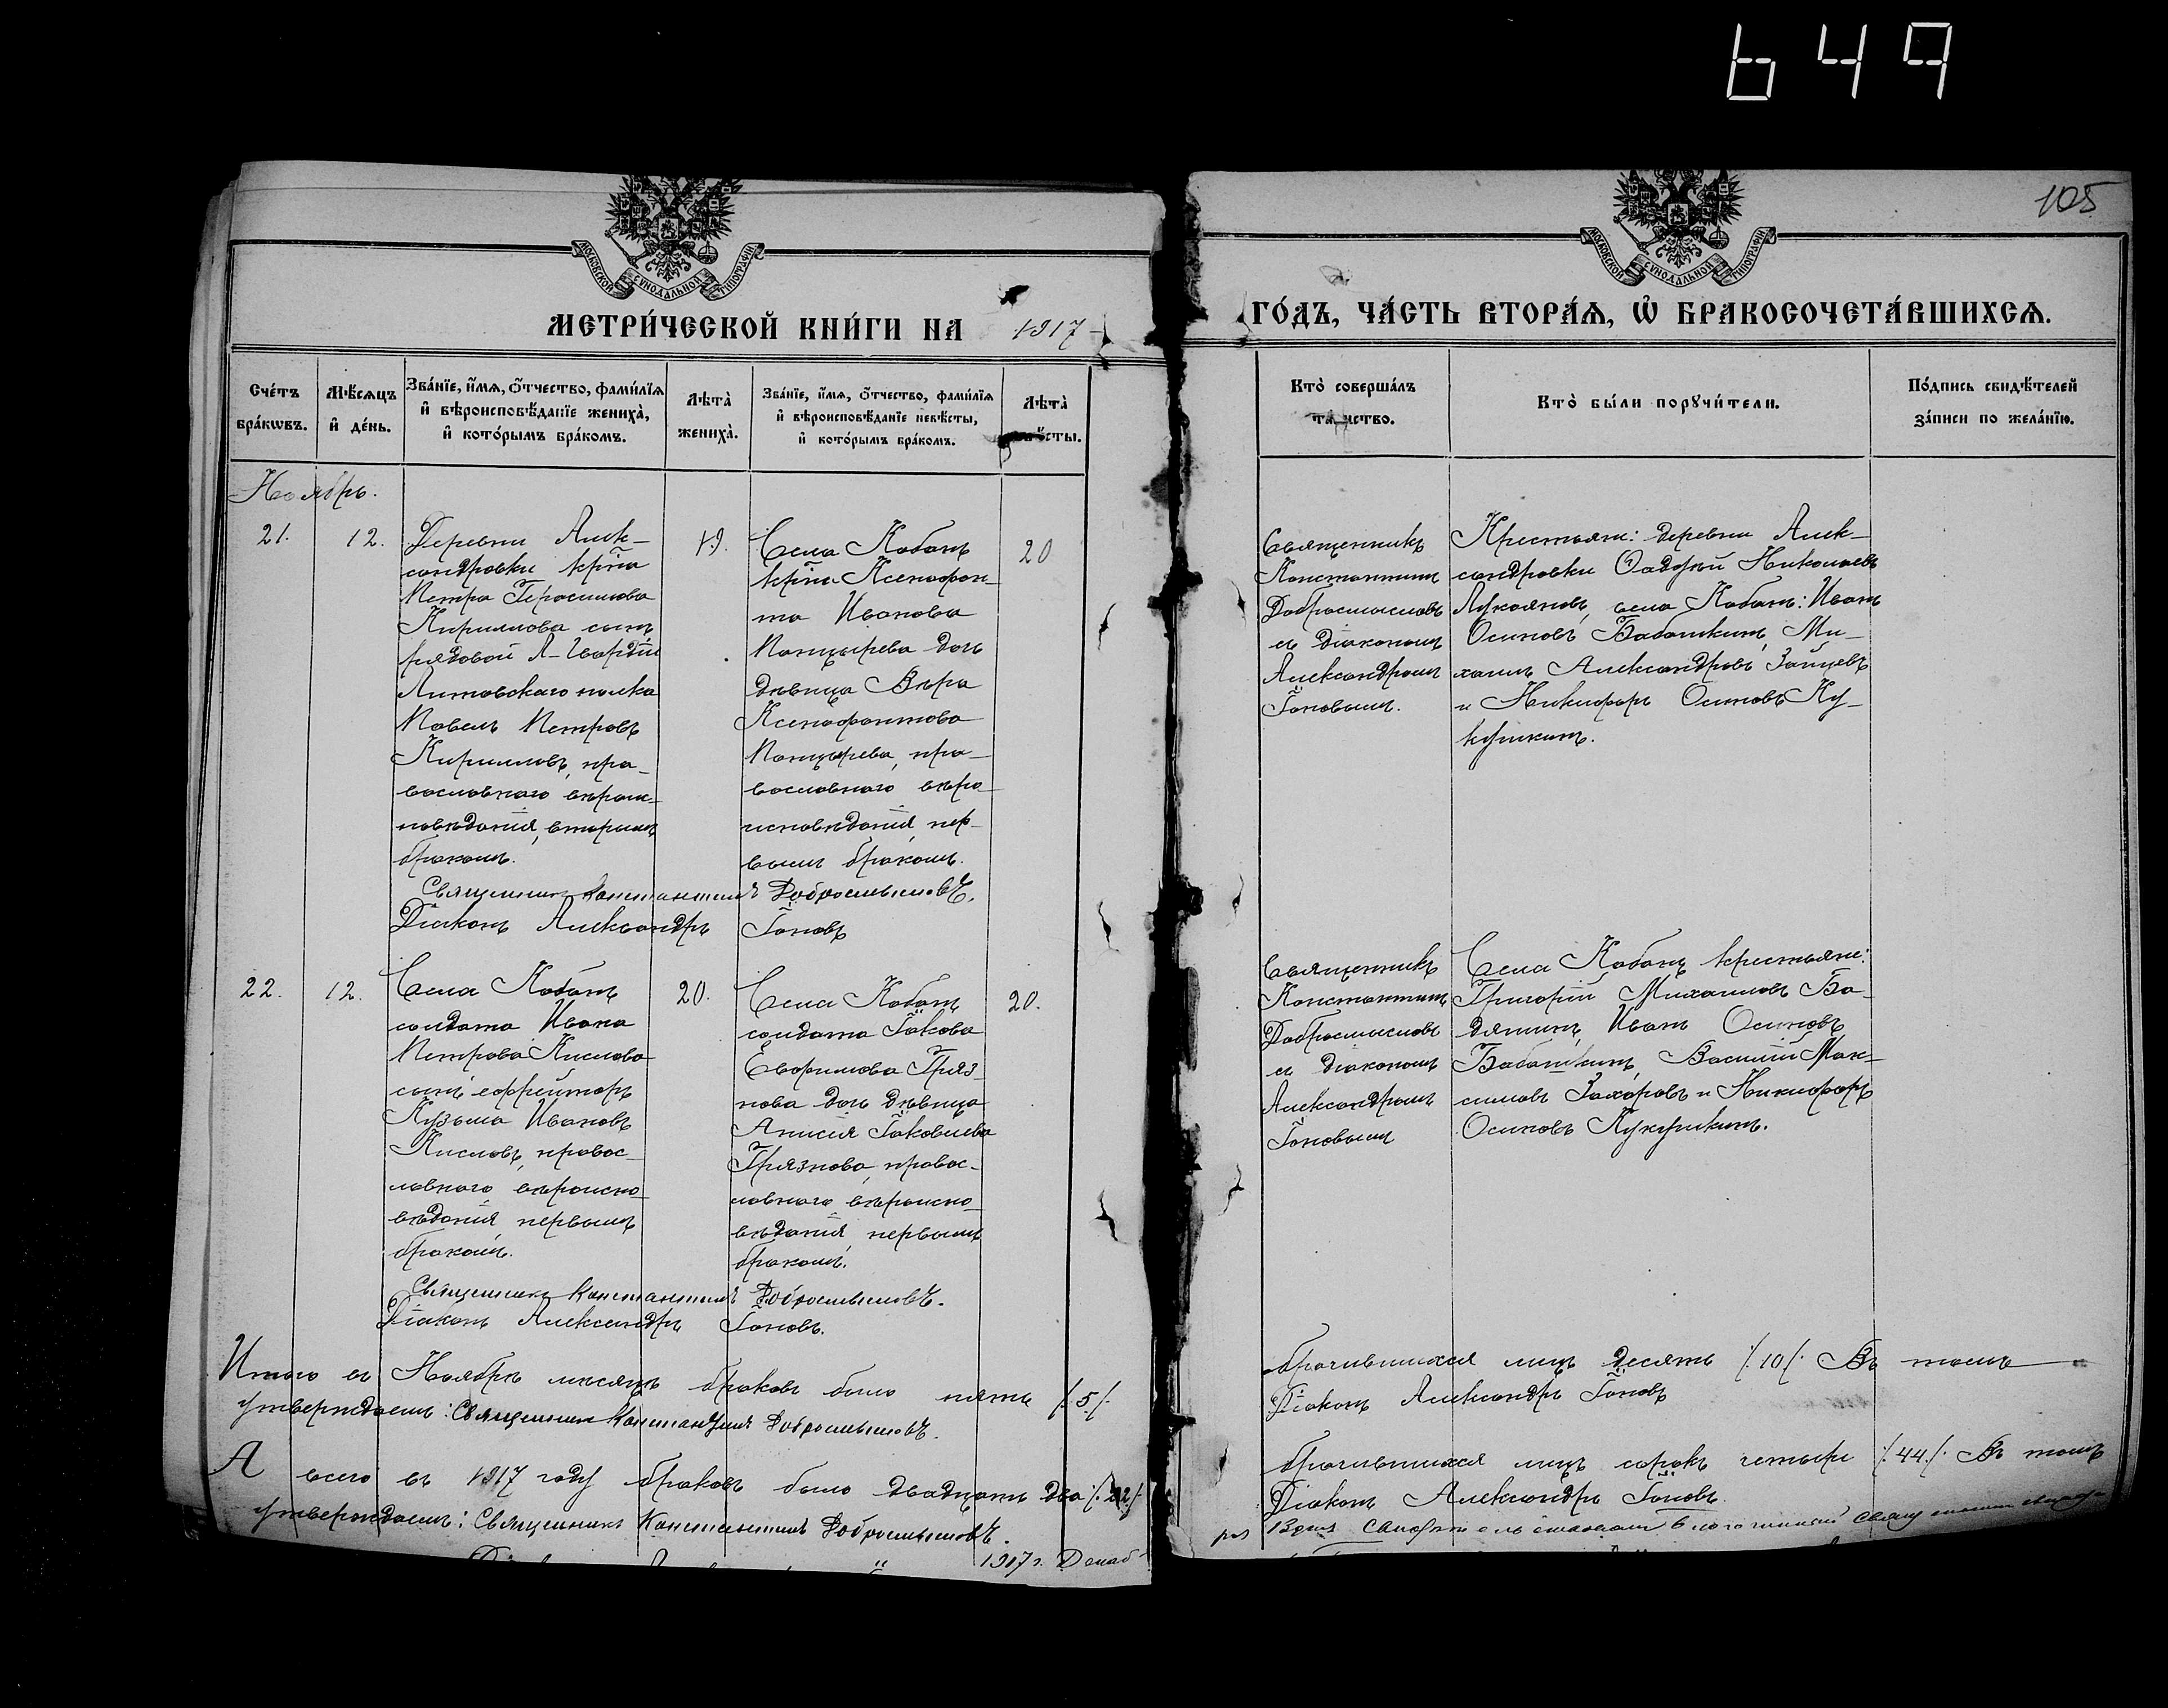 649
105
МОСКОВСКОЙ СѴНОДАЛЬНОЙ ТИПОГРАФІИ
МОСКОВСКОЙ СѴНОДАЛЬНОЙ ТИПОГРАФІИ
МЕТРИ́ЧЕСКОЙ КНИ́ГИ НА 1917
ГО́ДЪ, ЧА́СТЬ ВТОРА́Ѧ, Ѡ҆ БРАКОСОЧЕТА́ВШИХСѦ.
Сче́тъ
бра́кѡвъ.
Мѣ́сѧцъ
и҆ де́нь.
Зва́нїе, и҆́мѧ, ѻ҆́тчество, фами́лїѧ
и҆ вѣроисповѣ́данїе жениха̀,
и҆ кото́рымъ бра́комъ.
Лѣта̀
жениха̀.
Зва́нїе, и҆́мѧ, ѻ҆́тчество, фами́лїѧ
и҆ вѣроисповѣ́данїе невѣ́сты,
и҆ кото́рымъ бра́комъ.
Лѣта̀
сты.
Кто̀ соверша́лъ
та нство.
Кто̀ бы́ли порꙋчи́тели.
По́дпись свидѣ́телей
за́писи по жела́нїю.
Ноябрь.
21.
12.
Деревни Алек-
сандровки кр̃на
Петра Герасимова
Кириллова сынъ,
рядовой Л-Гвардіи
Литовскаго полка
Павелъ Петровъ
Кирилловъ, пра-
вославнаго вѣроис-
повѣданія, вторымъ
бракомъ.
19.
Села Кобанъ
кр̃на Ксенофон-
та Иванова
Панцырева дочь
дѣвица Вѣра
Ксенофонтова
Панцырева, пра-
вославнаго вѣро
исповѣданія, пер-
вымъ бракомъ.
20
Священникъ
Константинъ
Добросмысловъ
съ діакономъ
Александромъ
Гоновымъ.
Крестьяне: деревни Алек-
сандровки Ѳадѣй Николаевъ
Лукояновъ, села Кобанъ: Иванъ
Осиповъ Бабашкинъ, Ми-
хаилъ Александровъ Зайцевъ
и Никифоръ Осиповъ Ку-
кушкинъ.
Священникъ Константинъ Добросмысловъ.
Діаконъ Александръ Гоновъ
22.
12.
Села Кобанъ
солдата Ивана
Петрова Кислова
сынъ ефрейторъ
Кузьма Ивановъ
Кисловъ, правос-
лавнаго вѣроиспо-
вѣданія, первымъ
бракомъ.
20.
Села Кобанъ
солдата Іакова
Евфимова Гряз-
нова дочь дѣвица
Анисія Іаковлева
Грязнова, правос-
лавнаго вѣроиспо-
вѣданія, первымъ
бракомъ.
20.
Священникъ
Константинъ
Добросмысловъ
съ діакономъ
Александромъ
Гоновымъ
Села Кобанъ крестьяне:
Григорій Михаиловъ Ба-
дянинъ, Иванъ Осиповъ
Бабашкинъ, Василій Мак-
симовъ Захаровъ и Никифоръ
Осиповъ Кукушкинъ.
Священникъ Константинъ Добросмысловъ.
Діаконъ Александръ Гоновъ.
Итого въ Ноябрѣ мѣсяцѣ браковъ было пять /.5./.
брачившихся лицъ десять /.10/. Въ томъ
утверждаемъ: Священникъ Константинъ Добросмысловъ.
Діаконъ Александръ Гоновъ
А всего въ 1917 году браковъ было двадцать два /.22/.
брачившихся лицъ сорокъ четыре /.44./. Въ томъ
утверждаемъ: Священникъ Константинъ Добросмысловъ.
Діаконъ Александръ Гоновъ.
1917 г. Декаб